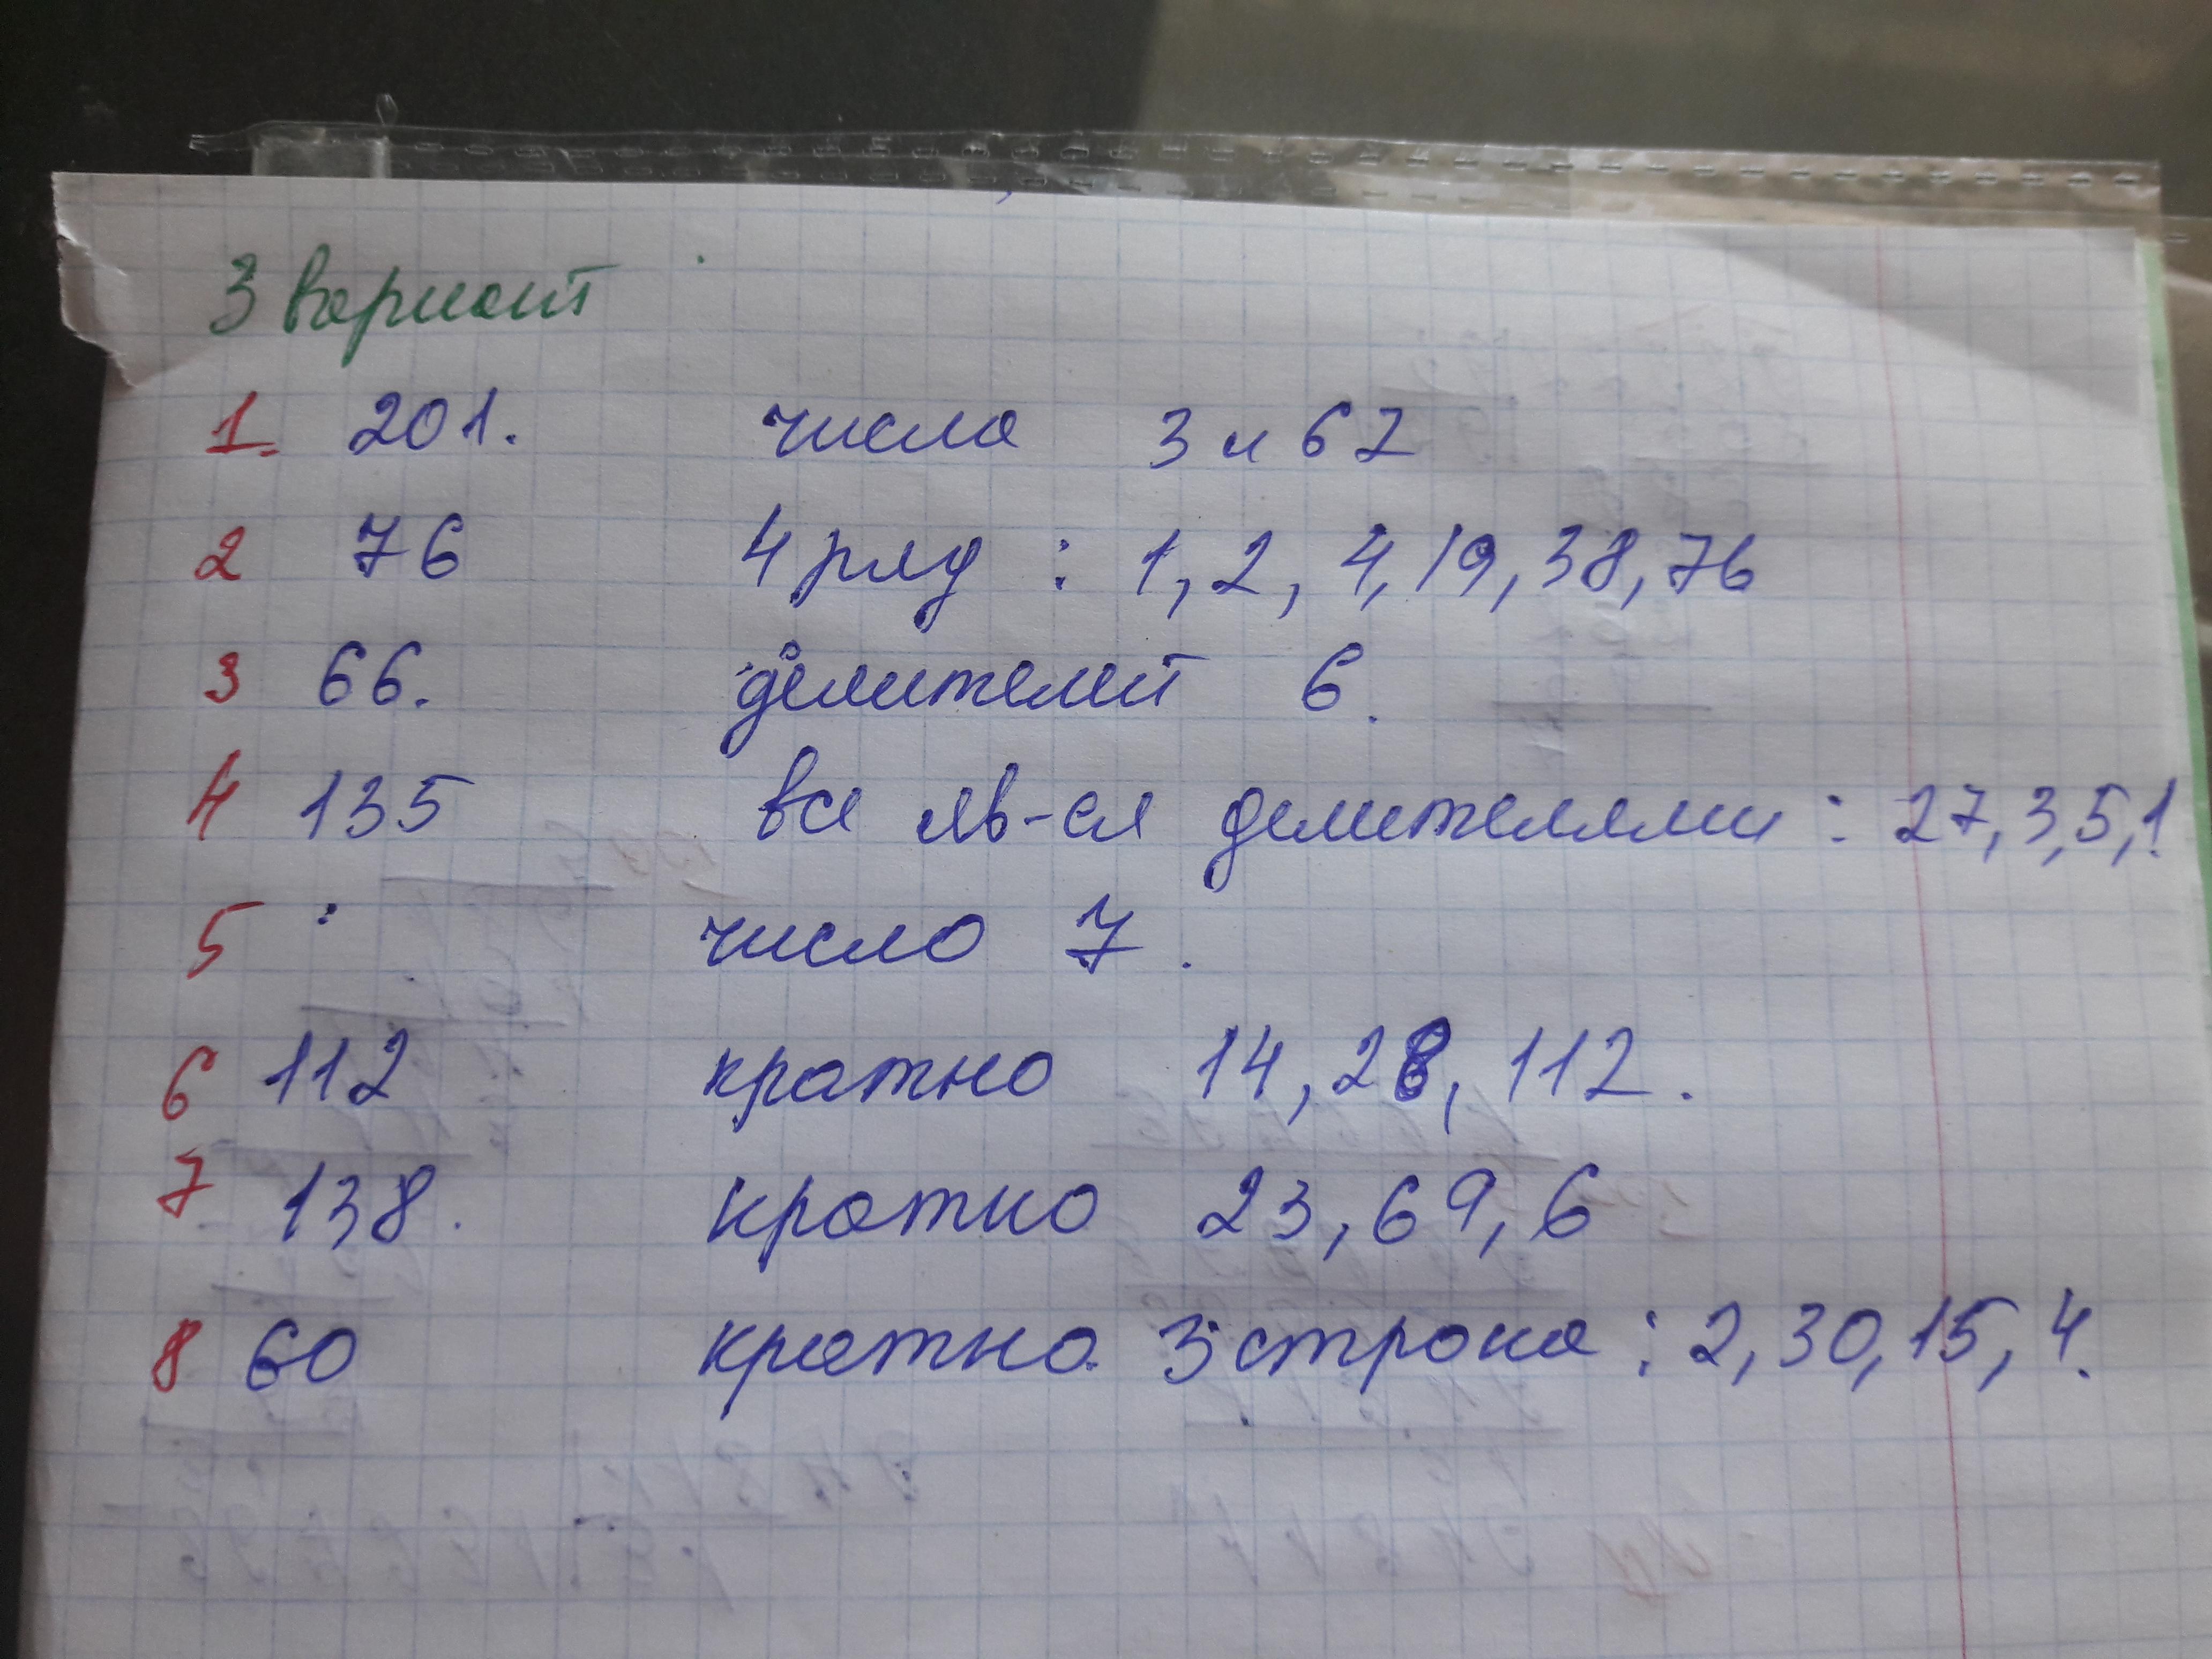 3 вариант
1. 201. числа 3 и 67
2 76 4 ряд : 1, 2, 4, 19, 38, 76
3 66. делителей 6.
4 135 все яв-ся делителями : 27, 3, 5, 1.
5 число 7.
6 112 кратно 14, 28, 112.
7 138. кратно 23, 69, 6
8 60 кратно. 3 строка : 2, 30, 15, 4.